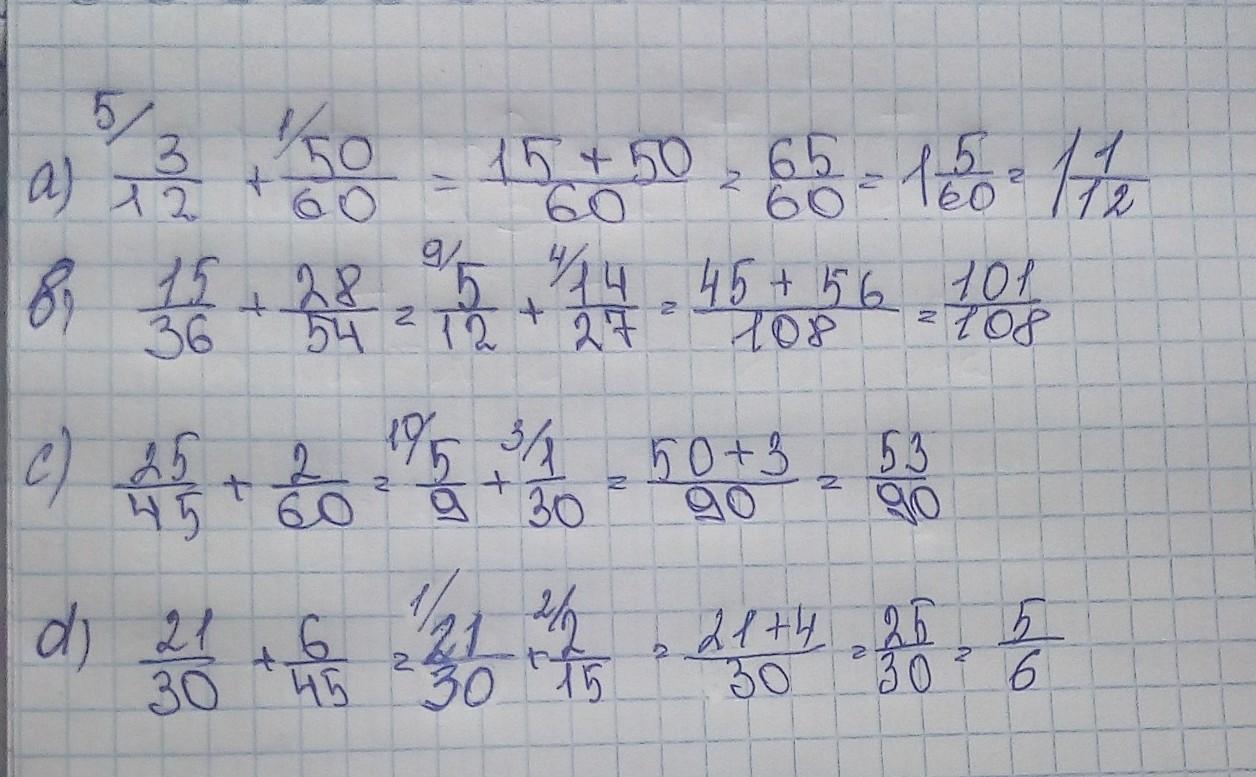 a) 5/ 3/12 + 1/ 50/60 = 15 + 50/60 = 65/60 = 1 5/60 = 1 1/12
b) 15/36 + 28/54 = 9/ 5/12 + 4/ 14/27 = 45 + 56/108 = 101/108
c) 25/45 + 2/60 = 10/ 5/9 + 3/ 1/30 = 50+3/90 = 53/90
d) 21/30 + 6/45 = 1/ 21/30 + 2/ 2/15 = 21+4/30 = 25/30 = 5/6